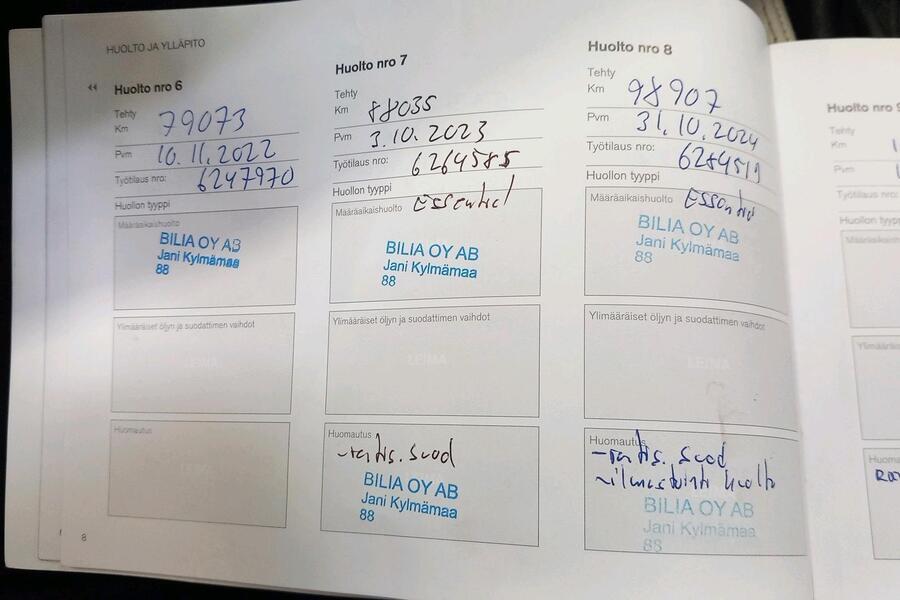 HUOLTO JA YLLÄPITO
Huolto nro 6
Tehty
Km 79073
Pvm 10.11.2022
Työtilaus nro: 6247970
Huollon tyyppi
Määräaikaishuolto
BILIA OY AB
Jani Kylmämaa
88
Ylimääräiset öljyn ja suodattimen vaihdot
LEIMA
Huomautus
8
Huolto nro 7
Tehty
Km 88035
Pvm 3.10.2023
Työtilaus nro: 6264585
Huollon tyyppi
Määräaikaishuolto Essential
BILIA OY AB
Jani Kylmämaa
88
Ylimääräiset öljyn ja suodattimen vaihdot
LEIMA
Huomautus
-raitis. suod
BILIA OY AB
Jani Kylmämaa
88
Huolto nro 8
Tehty
Km 98907
Pvm 31.10.2024
Työtilaus nro: 6284519
Huollon tyyppi
Määräaikaishuolto Essential
BILIA OY AB
Jani Kylmämaa
88
Ylimääräiset öljyn ja suodattimen vaihdot
LEIMA
Huomautus
-raitis. suod
-ilmastointi huolto
BILIA OY AB
Jani Kylmämaa
88
Huolto nro 9
Tehty
Km
Pvm
Työtilaus nro:
Huollon